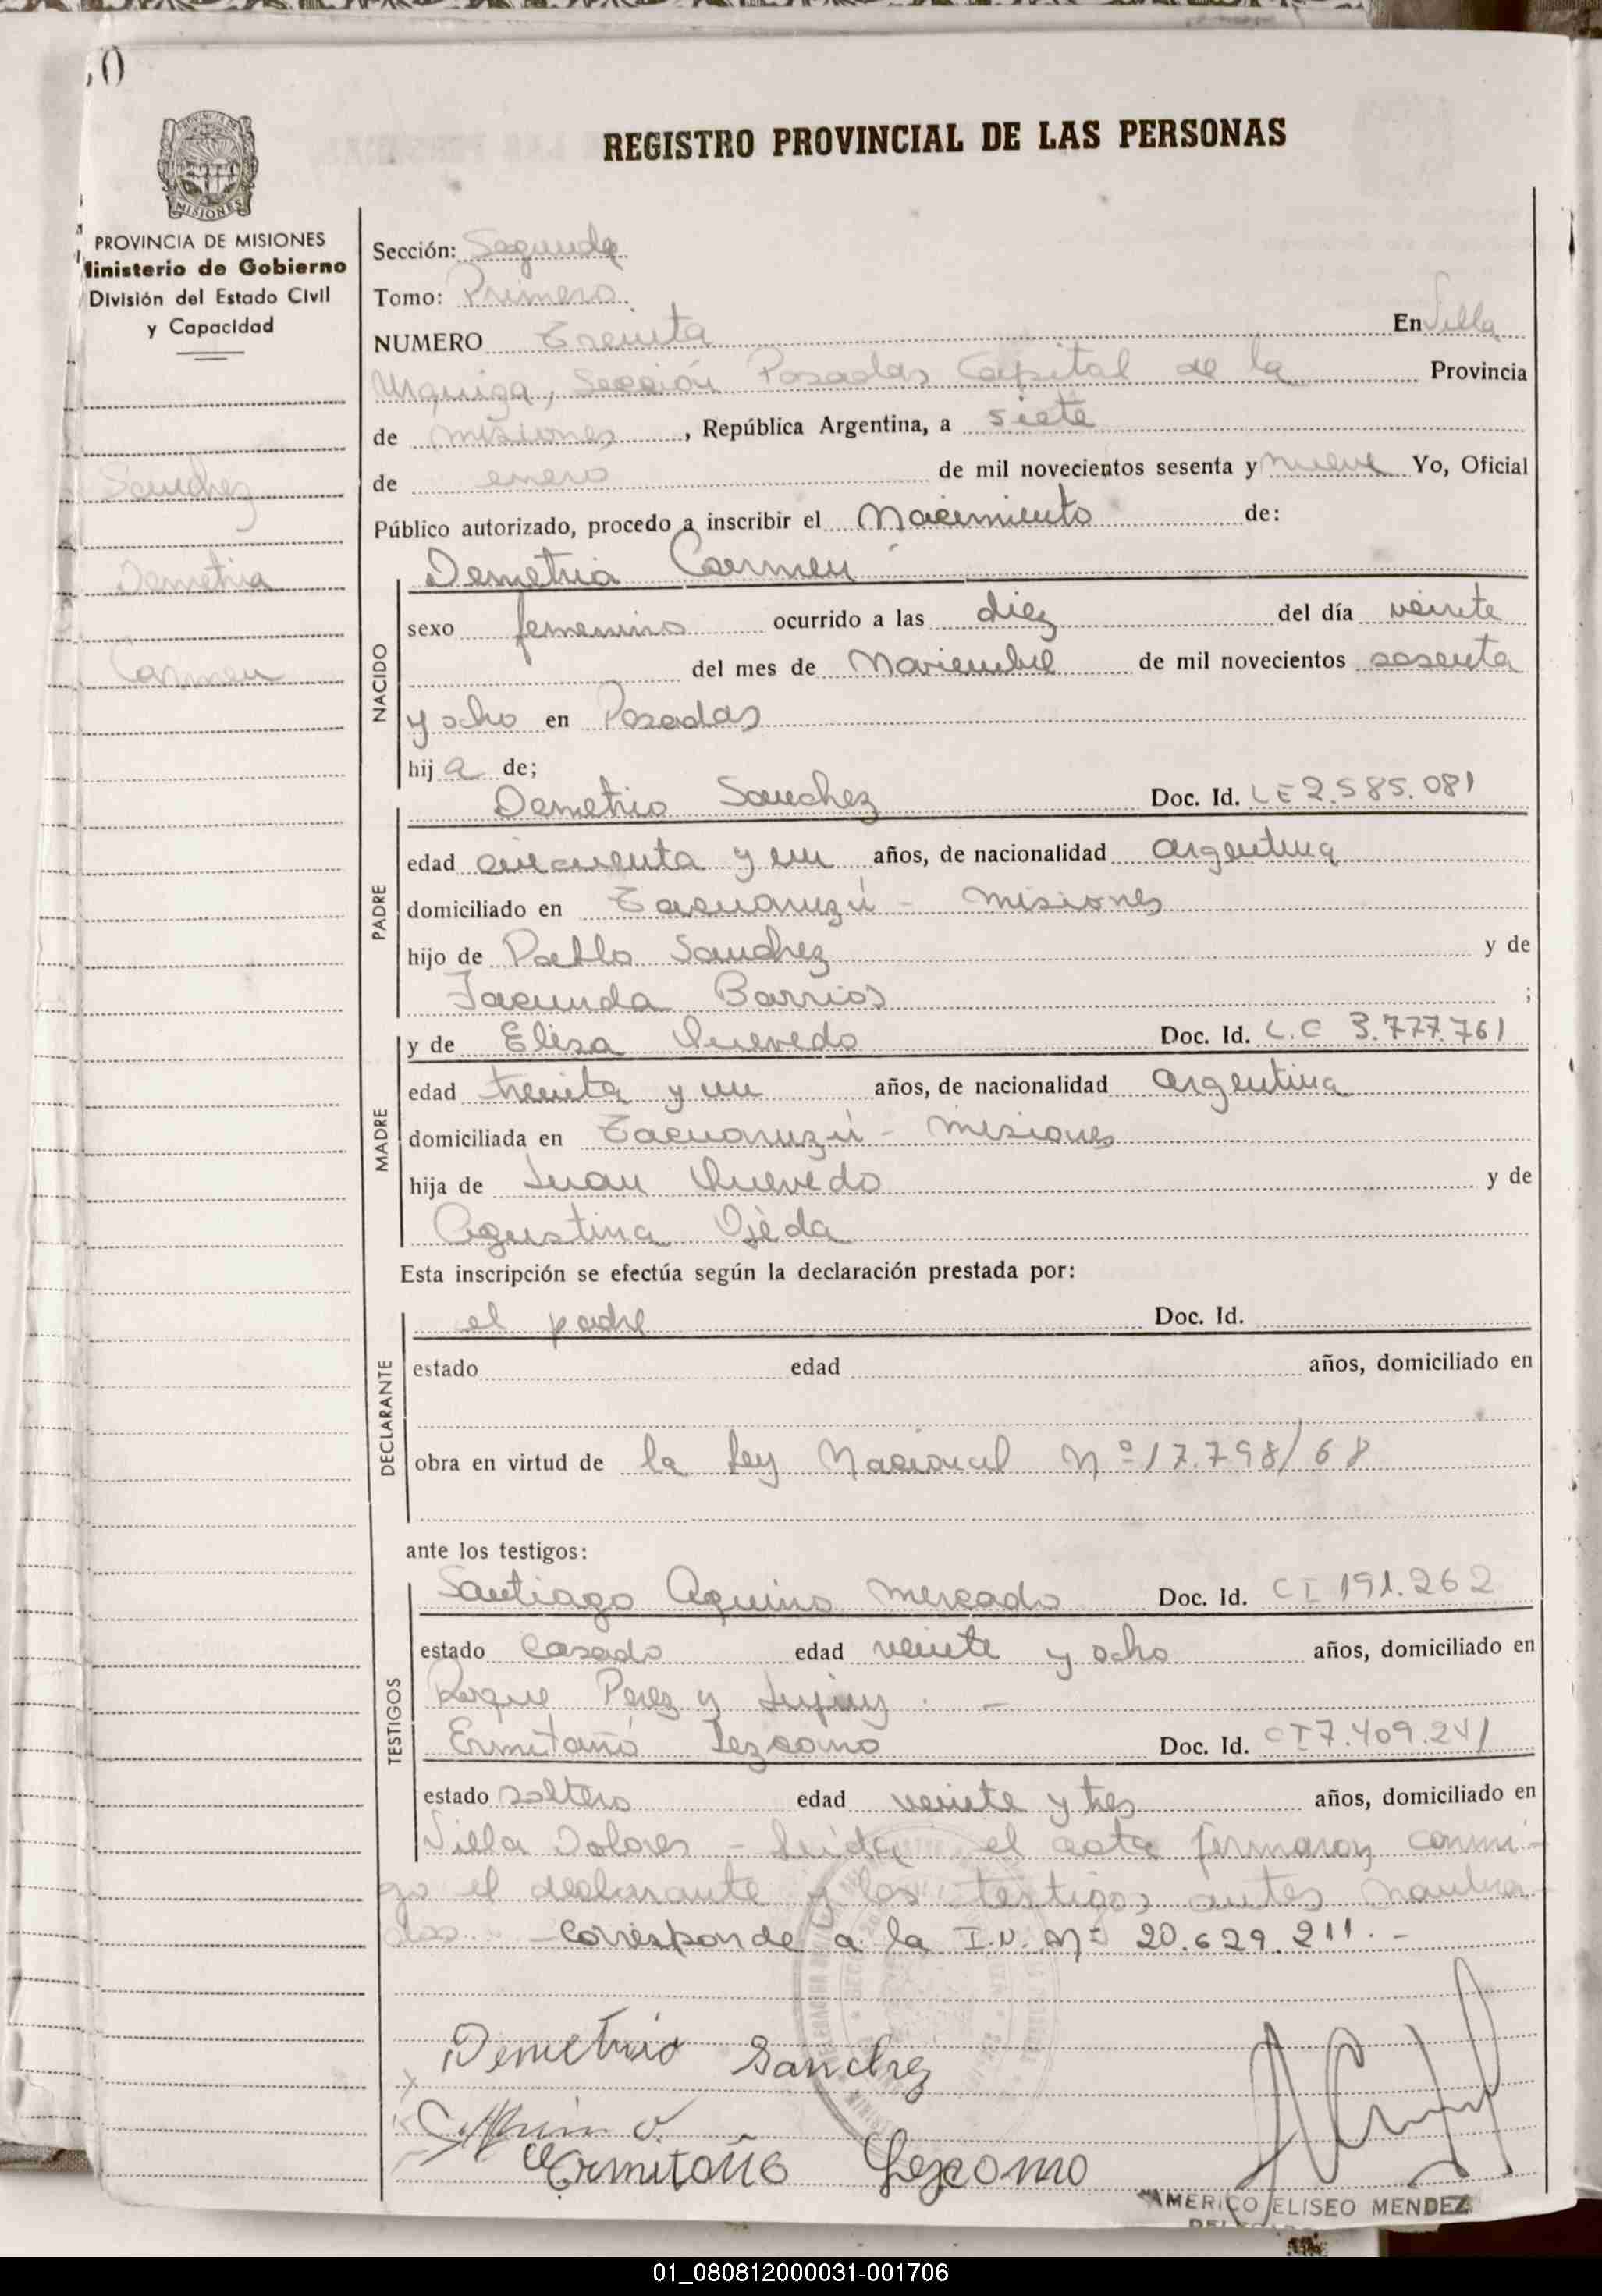 30
REGISTRO PROVINCIAL DE LAS PERSONAS
MISIONES
PROVINCIA DE MISIONES
Ministerio de Gobierno
División del Estado Civil
y Capacidad
Sanchez
Demetria
Carmen
Sección: Segunda
Tomo: Primero
NUMERO Treinta En Villa
Urquiza, Sección Posadas Capital de la Provincia
de Misiones, República Argentina, a siete
de enero de mil novecientos sesenta y nueve Yo, Oficial
Público autorizado, procedo a inscribir el Nacimiento de:
Demetria Carmen
NACIDO
sexo femenino ocurrido a las diez del día veinte
del mes de Noviembre de mil novecientos sesenta
y ocho en Posadas
hija de;
Demetrio Sanchez Doc. Id. LE 2.585.081
PADRE
edad cincuenta y un años, de nacionalidad argentina
domiciliado en Tacuaruzú - Misiones
hijo de Pablo Sanchez y de
Facunda Barrios ;
y de Elisa Quevedo Doc. Id. L.C 3.777.761
MADRE
edad treinta y un años, de nacionalidad argentina
domiciliada en Tacuaruzú - Misiones
hija de Juan Quevedo y de
Agustina Ojéda
Esta inscripción se efectúa según la declaración prestada por:
el padre Doc. Id.
DECLARANTE
estado edad años, domiciliado en
obra en virtud de la Ley Nacional Nº 17.798/68
ante los testigos:
Santiago Aquino Mercado Doc. Id. CI 191.262
TESTIGOS
estado Casado edad veinte y ocho años, domiciliado en
Roque Perez y Jujuy. -
Ermitaño Lezcano Doc. Id. CI 7.409.241
estado soltero edad veinte y tres años, domiciliado en
Villa Dolores - Leída el acta firmaron conmi-
go el declarante y los testigos antes nombra-
dos. - Corresponde a la I.N. Nº 20.629.211. -
Demetrio Sanchez
Ermitaño Lezcano
AMERICO ELISEO MENDEZ
01_080812000031-001706